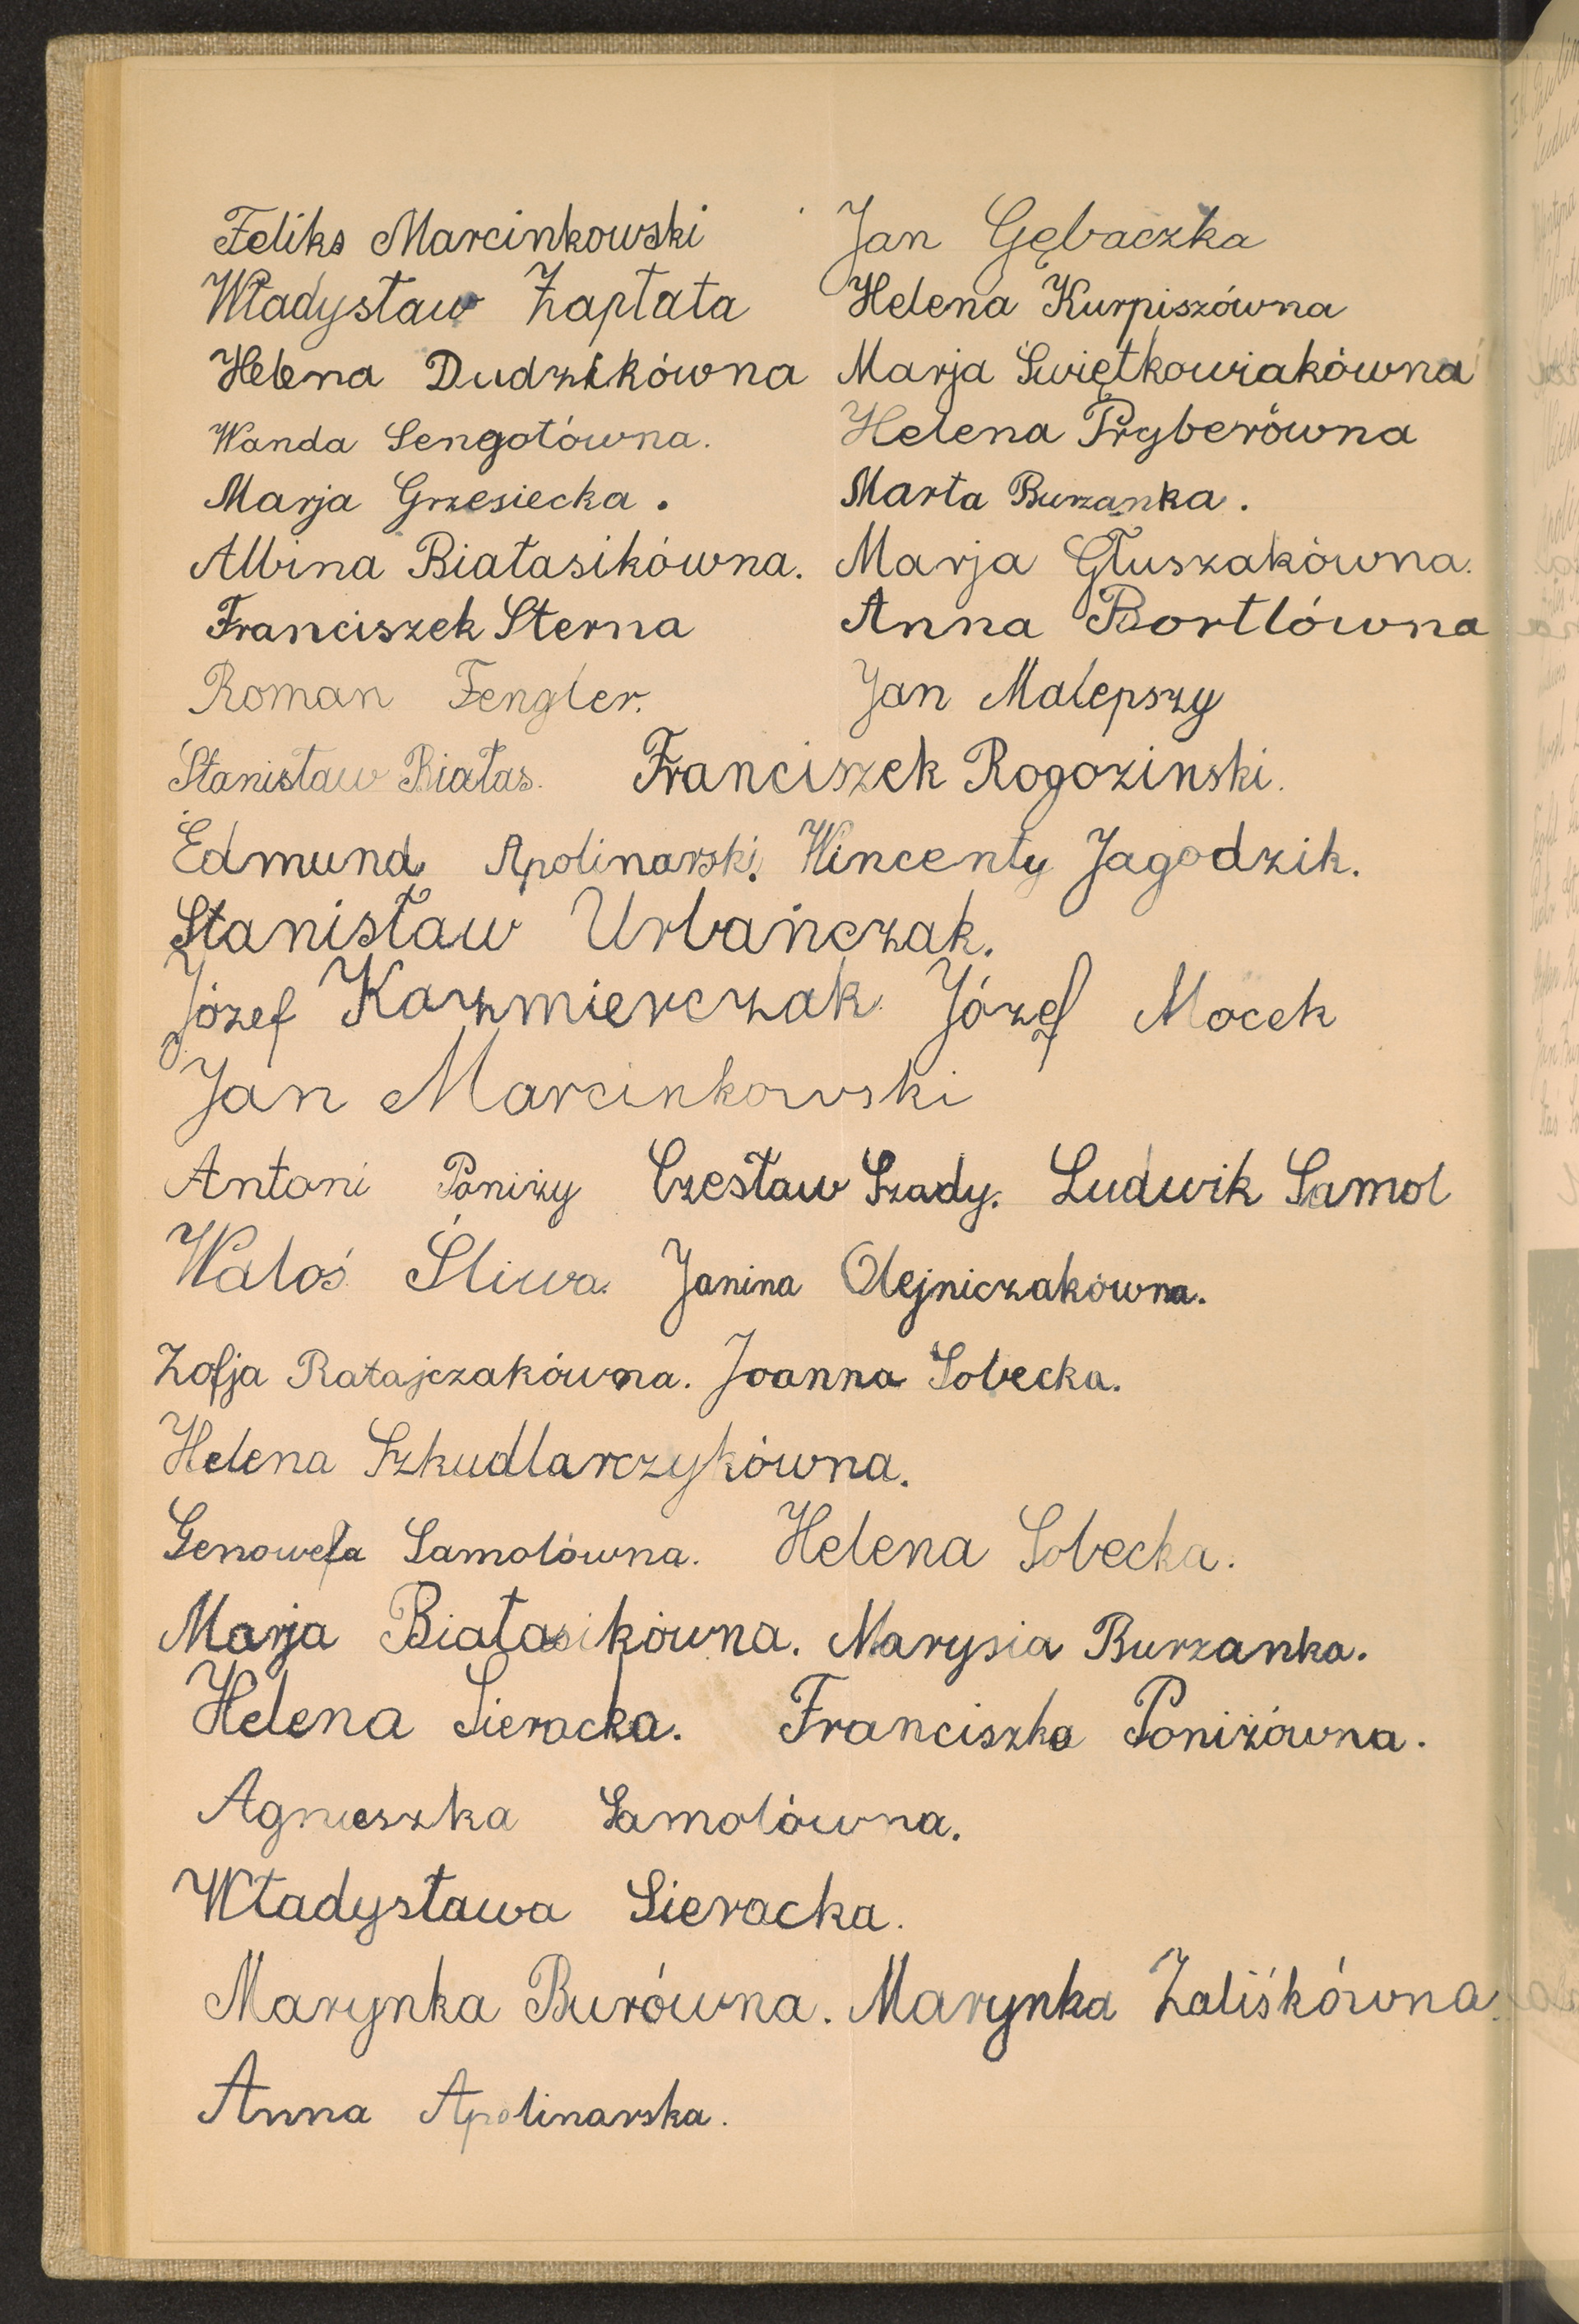 Feliks Marcinkowski Jan Gębaczka
Władysław Zapłata Helena Kurpiszówna
Helena Dudzikówna Marja Świętkowiakówna
Wanda Sengotówna. Helena Pryberówna
Marja Grzesiecka. Marta Burzanka.
Albina Białasikówna. Marja Głuszakówna.
Franciszek Sterna Anna Bortlówna
Roman Fengler. Jan Malepszy
Stanisław Białas. Franciszek Rogozinski.
Edmund Apolinarski. Wincenty Jagodzik.
Stanisław Urbańczak.
Józef Kazmierczak Józef Mocek
Jan Marcinkowski
Antoni Poniży Czesław Szady. Ludwik Samol
Waloś Śliwa. Janina Olejniczakówna.
Zofja Ratajczakówna. Joanna Sobecka.
Helena Szkudlarczykówna.
Genowefa Samolówna. Helena Sobecka.
Marja Białasikówna. Marysia Burzanka.
Helena Sieracka. Franciszka Poniżówna.
Agnieszka Samolówna.
Władysława Sieracka.
Marynka Burówna. Marynka Zaliśkówna.
Anna Apolinarska.